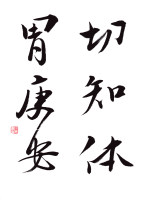 切知体
胃庚安